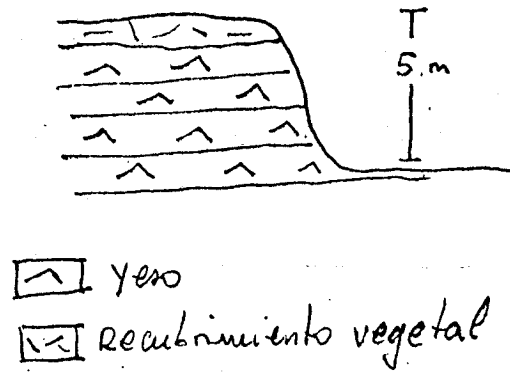 5 m
Yeso
Recubrimiento vegetal